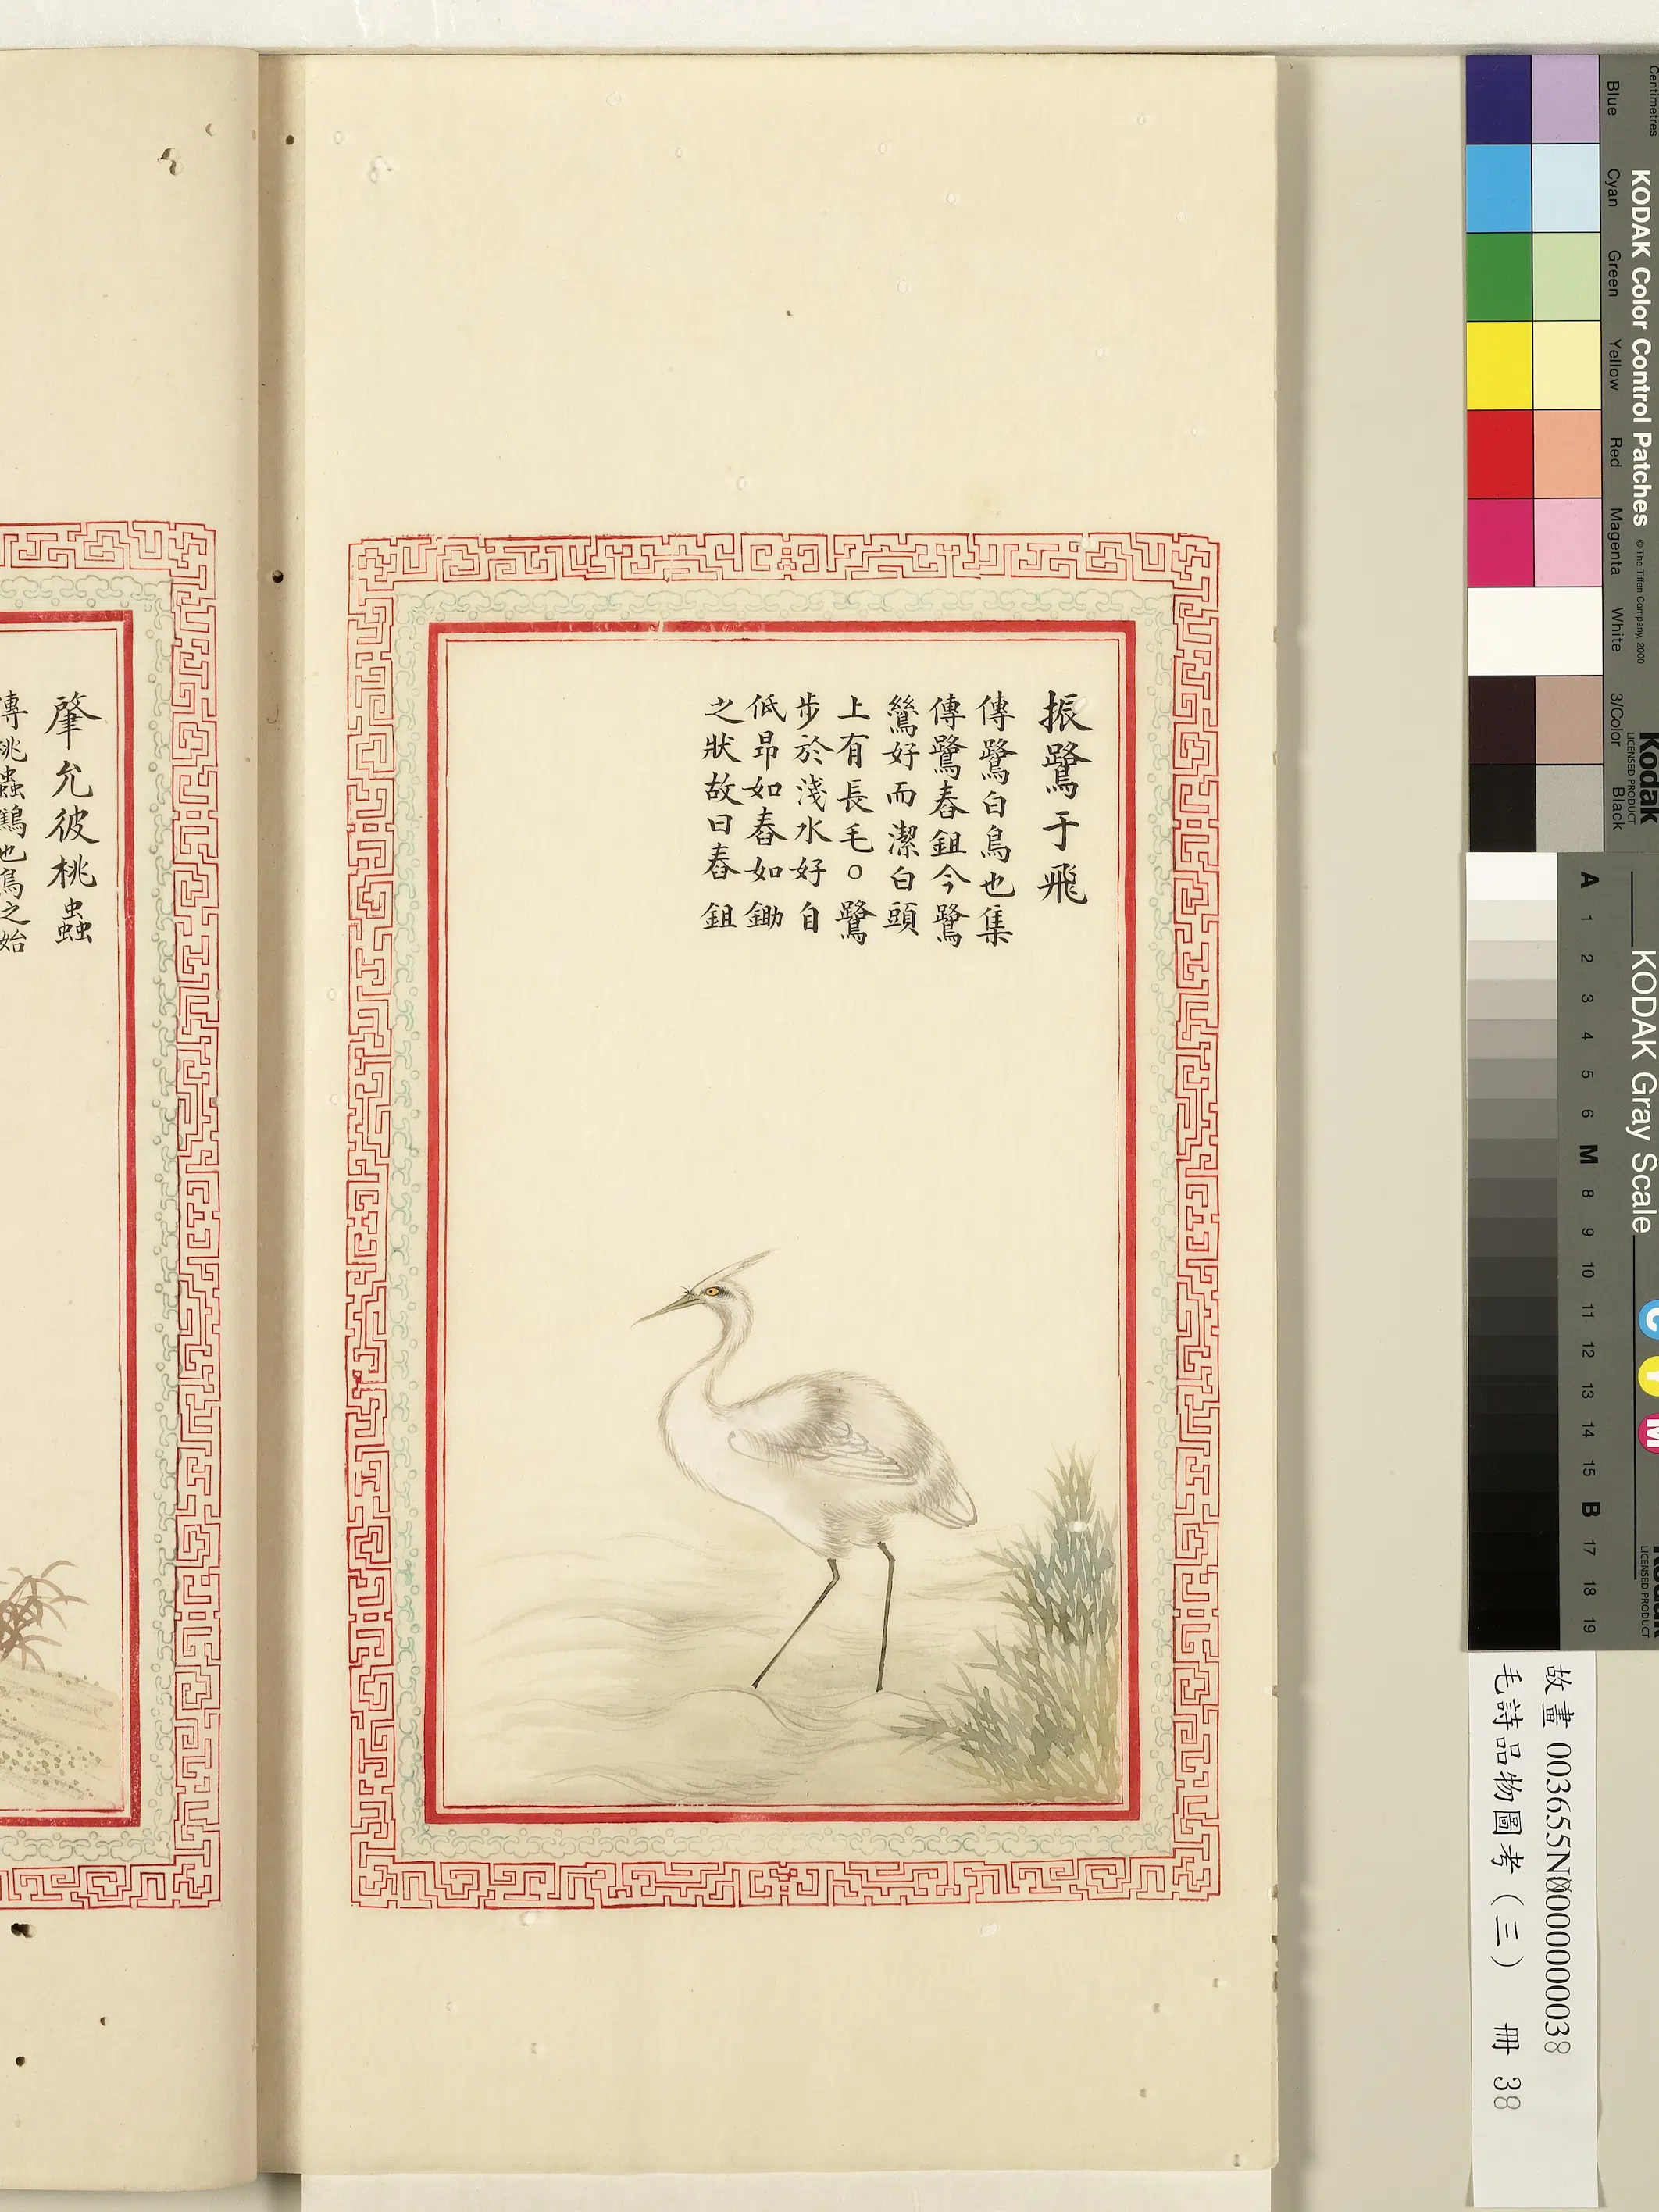 振鷺于飛
傳鷺白鳥也集
傳鷺舂鉏今鷺
鷥好而潔白頭
上有長毛○鷺
步於淺水好自
低昂如舂如鋤
之狀故曰舂鉏
肇允彼桃蟲
傳桃蟲鷦也鳥之始
Centimetres
Blue
Cyan
Green
Yellow
Red
Magenta
White
3/Color
Black
KODAK Color Control Patches © The Tiffen Company, 2000
Kodak
LICENSED PRODUCT
KODAK Gray Scale
A 1 2 3 4 5 6 M 8 9 10 11 12 13 14 15 B 17 18 19
C Y M
LICENSED PRODUCT
故畫 003655N000000038
毛詩品物圖考（三） 冊 38